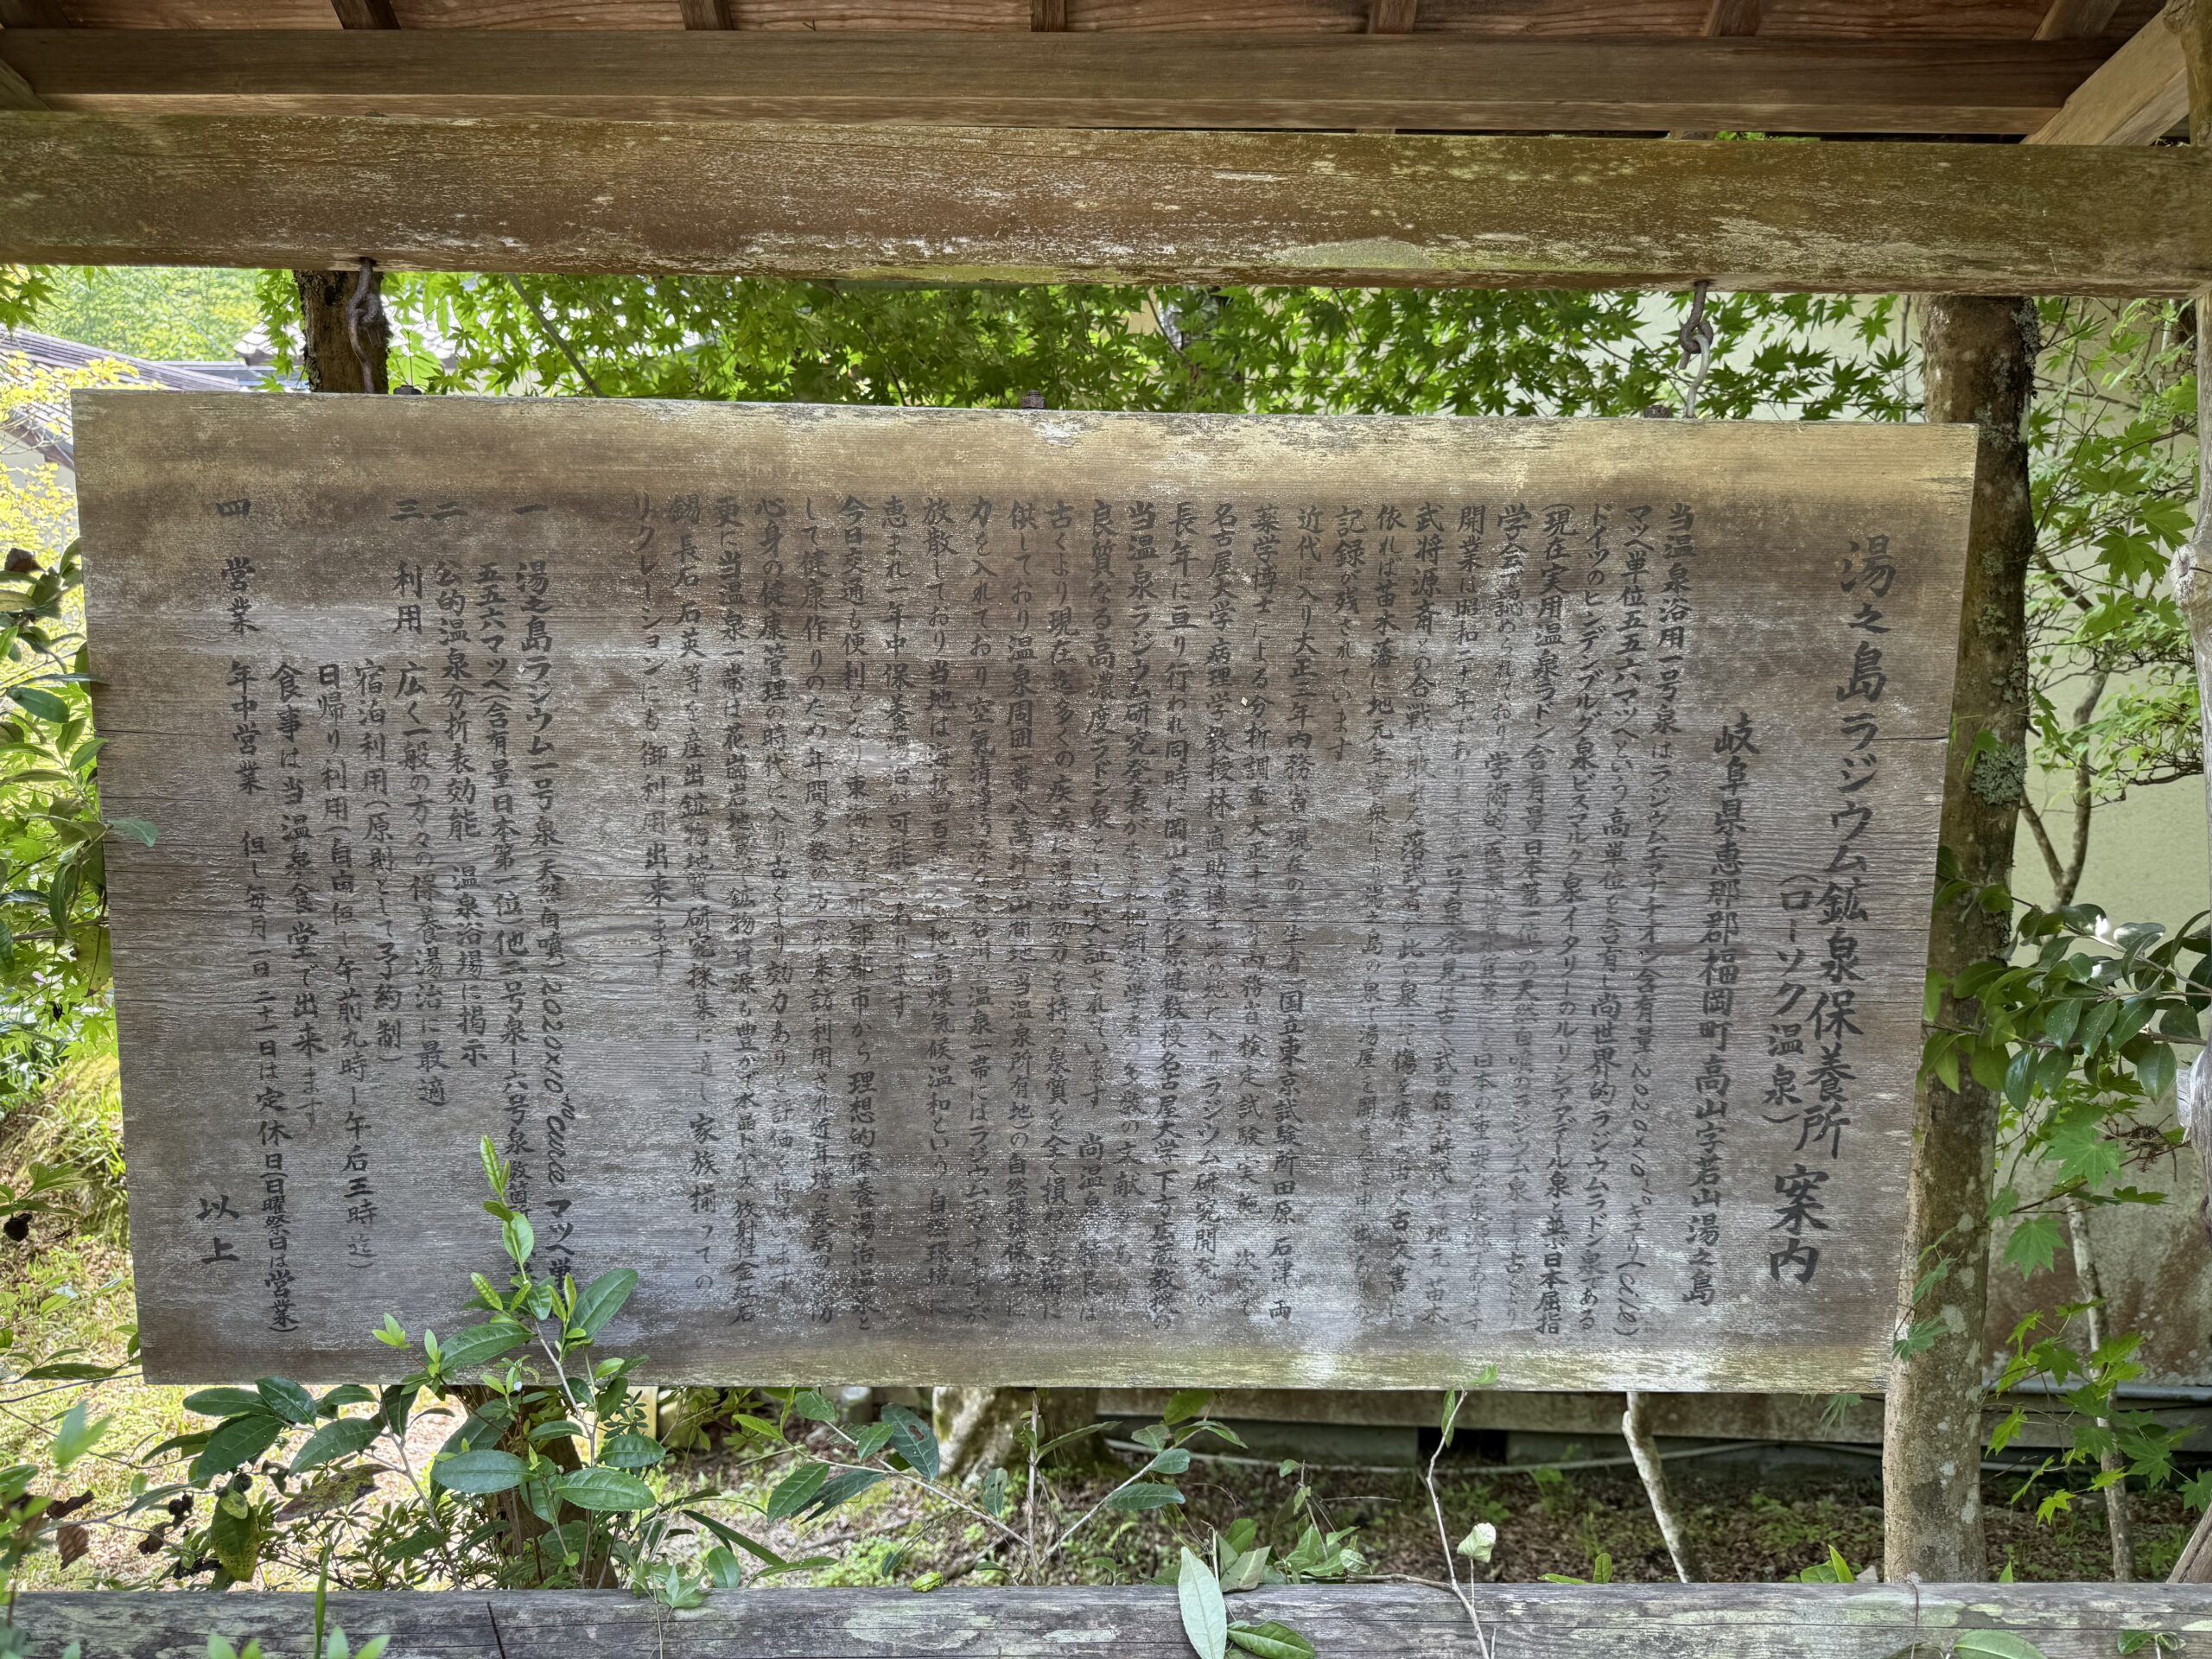 湯之島ラジウム鉱泉保養所 案内
(ローソク温泉)
岐阜県恵那郡福岡町高山字若山湯之島
当温泉浴用一号泉はラジウムエマナチオン含有量2020×10⁻¹⁰キュリー(Curie)
マッヘ単位五五六マッヘという高単位を含有し尚世界的ラジウムラドン泉である
ドイツのヒンデンブルグ泉ビスマルク泉イタリーのルリシアアデール泉と並ぶ日本屈指
(現在実用温泉ラドン含有量日本第一位)の天然自噴のラジウム泉として古くより
学会で認められており 学術的 日本の重要な泉源であります
開業は昭和二十年であります 一号泉発見は古く武田信玄時代にて地元 苗木
武将源斎との合戦で敗れた落武者 此の泉にて傷を癒した 古文書に
依れば苗木藩に地元年寄衆により湯之島の泉で湯屋を開き
記録が残されています
近代に入り大正三年内務省(現在の厚生省)国立東京試験所田原 石津 両
薬学博士による分析調査 大正十三年内務省検定試験 実施 次いで
名古屋大学病理学教授林直助博士此の地に入りラジウム研究開発が
長年に亘り行われ同時に岡山大学杉原健教授名古屋大学下方広蔵教授の
当温泉ラジウム研究発表が 学者の多数の文献
良質なる高濃度ラドン泉として実証されています 尚温泉の特長は
古くより現在迄多くの疾病に湯治効力を持つ泉質を全く損わず浴用に
供しており温泉周囲一帯八萬坪の山間地(当温泉所有地)の自然環境保全に
力を入れており空気清浄 谷川 温泉一帯にはラジウムエマナチオンが
放散しており当地は海抜四百 地 高燥気候温和という自然環境に
恵まれ一年中保養湯治が可能であります
今日交通も便利となり東海 都市から理想的保養湯治温泉と
して健康作りのため年間多数の方々が来訪利用され近年増々疾病の予防
心身の健康管理の時代に入り古くより効力ありと評価を得ています
更に当温泉一帯は花崗岩地質で鉱物資源も豊かで水晶トパーズ放射性金紅石
錫 長石 石英 等を産出鉱物地質研究採集に適し 家族揃っての
リクレーションにも御利用出来ます
一 湯之島ラジウム一号泉(天然自噴)2020×10⁻¹⁰Curie マッヘ単
五五六マッヘ含有量日本第一位 他二号泉ー六号泉 数箇
二 公的温泉分析表効能 温泉浴場に掲示
三 利用 広く一般の方々の保養湯治に最適
宿泊利用(原則として予約制)
日帰り利用(自由但し午前九時ー午后三時迄)
食事は当温泉食堂で出来ます
四 営業 年中営業 但し毎月一日 二十一日は定休日(日曜祭日は営業)
以上